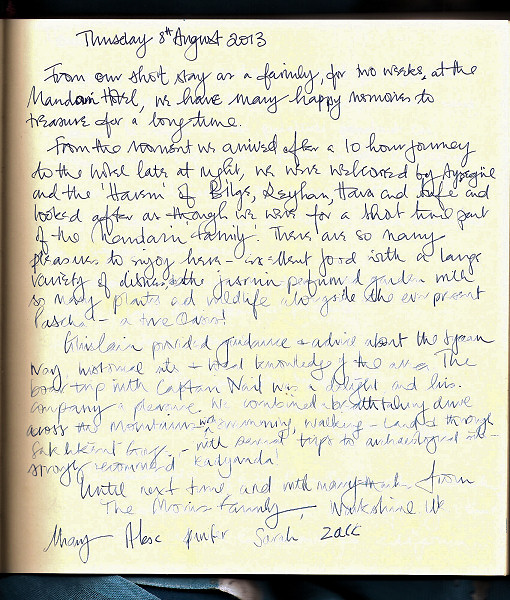 Thursday 8th August 2013
From our short stay as a family, for two weeks, at the
Mandarin Hotel, we have many happy memories to
treasure for a long time.
From the moment we arrived after a 10 hour journey
to the hotel late at night, we were welcomed by
and the 'Harem' of Bilge, Seyhan, Hava and and
looked after as though we were for a short time part
of the 'Mandarin family'. There are so many
pleasures to enjoy here - excellent food with a large
variety of dishes, the jasmin perfumed garden with
so many plants and wildlife alongside the ever present
Pascha - a true Oasis!
Ghislain provided guidance + advice about the Lycean
Way, historical sites + local knowledge of the area. The
boat trip with Captain Nail was a delight and his
company a pleasure. We combined a breathtaking drive
across the mountains, swimming, walking - and through
Saklikent Gorge - with several trips to archaeological sites -
strongly recommend Kadyanda!
Until next time and with many thanks from
The Morris Family, Yorkshire UK
Mary Alex Sarah Zack